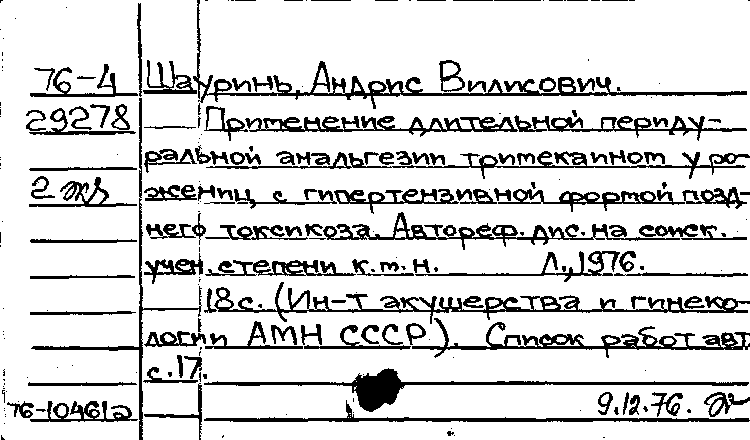 76-4 Шауринь, Андрис Вилисович.
29278 Применение длительной периду-
ральной анальгезии тримекаином у ро-
2 экз жениц с гипертензивной формой позд-
него токсикоза. Автореф. дис. на соиск.
учен. степени к.м.н. Л., 1976.
18 с. (Ин-т акушерства и гинеко-
логии АМН СССР). Список работ авт.
с. 17.
76-10461а 9.12.76.